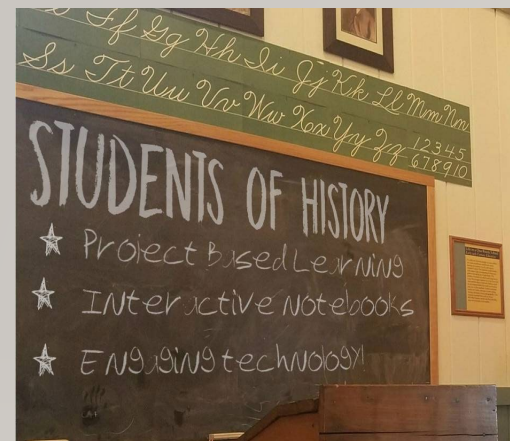 Ff Gg Hh Ii Jj Kk Ll Mm Nn
Ss Tt Uu Vv Ww Xx Yy Zz 1 2 3 4 5
6 7 8 9 10
STUDENTS OF HISTORY
Project Based Learning
Interactive Notebooks
Engaging technology!